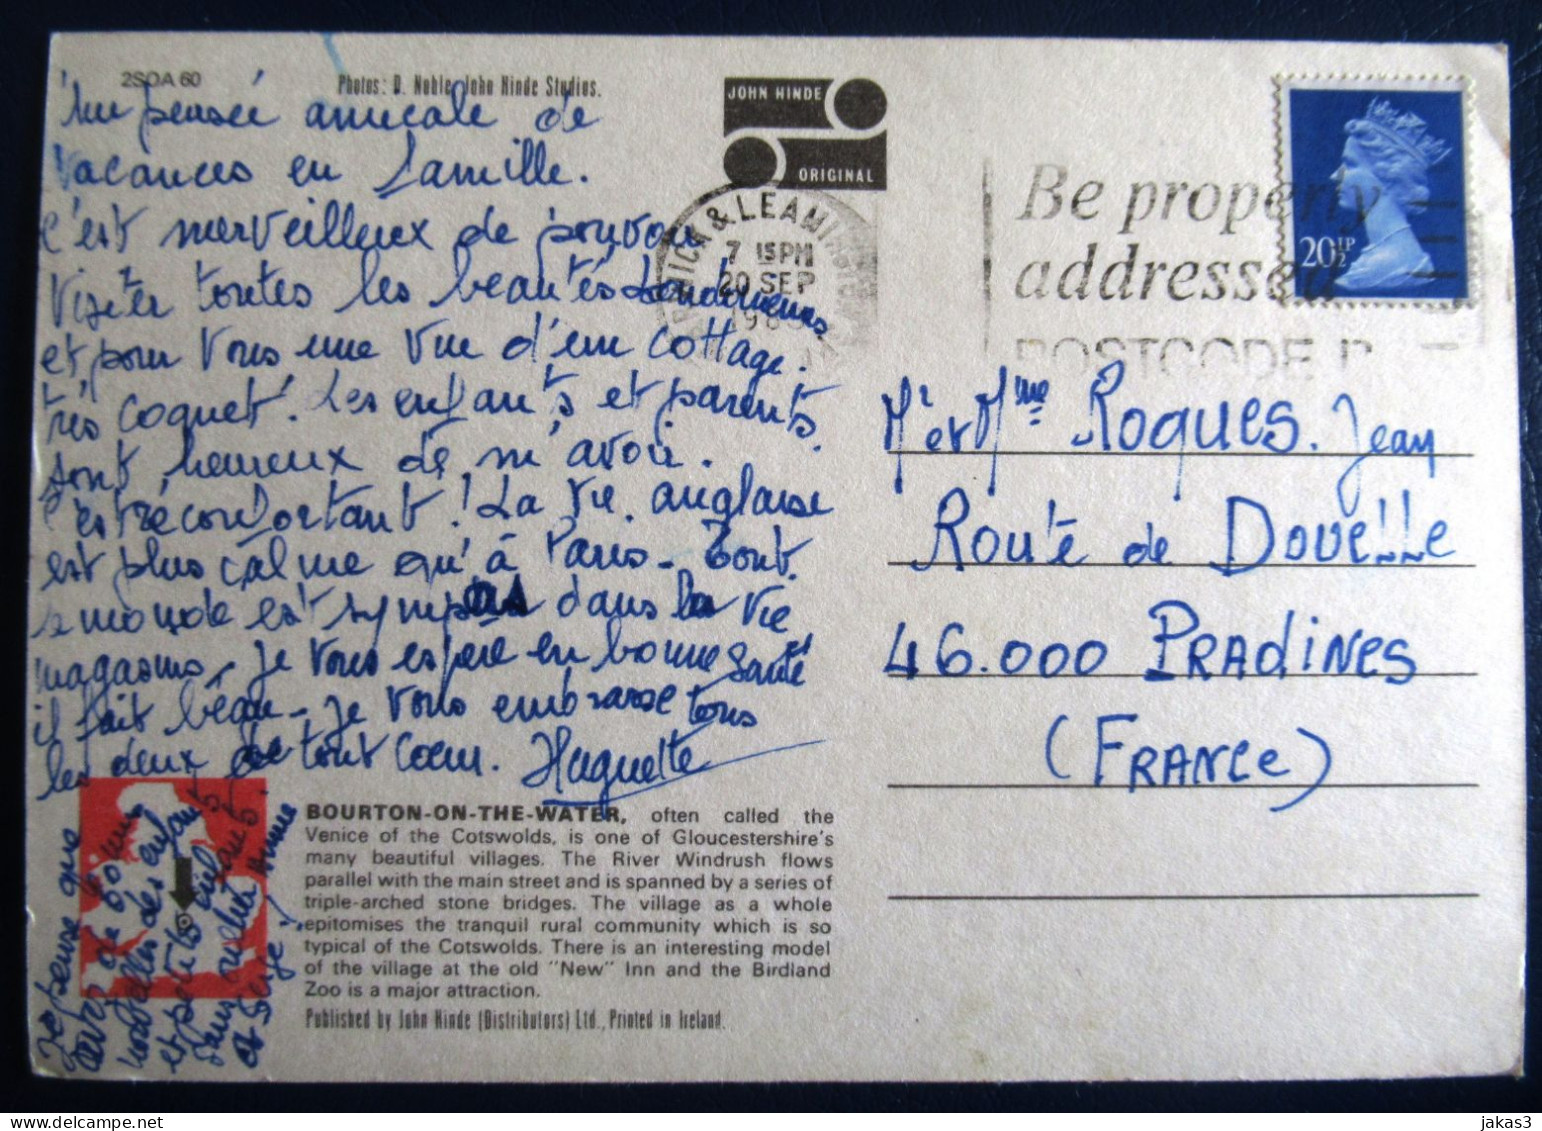 2SOA 60
Photos: D. Noble, John Hinde Studios.
Une pensée amicale de
vacances en famille.
c'est merveilleux de pouvoir
visiter toutes les beautés Londoniennes
et pour vous une vue d'un cottage.
très coquet. Les enfants et parents.
sont heureux de m'avoir.
c'est réconfortant! La vie anglaise
est plus calme qu'à Paris - Tout
le monde est sympas dans la vie
magasins - je vous espère en bonne santé
il fait beau - je vous embrasse tous
les deux de tout coeur. Huguette
Je pense que
avez de bonnes
nouvelles des enfants
et petits enfants
dans
et Serge
JOHN HINDE
ORIGINAL
WARWICK & LEAMINGTON SPA
7 15PM
20 SEP
198
Be properly
addressed
POSTCODE I
20½P
Mr et Mme Roques. Jean
Route de Douelle
46.000 PRADINES
(FRANCE)
BOURTON-ON-THE-WATER, often called the
Venice of the Cotswolds, is one of Gloucestershire's
many beautiful villages. The River Windrush flows
parallel with the main street and is spanned by a series of
triple-arched stone bridges. The village as a whole
epitomises the tranquil rural community which is so
typical of the Cotswolds. There is an interesting model
of the village at the old "New" Inn and the Birdland
Zoo is a major attraction.
Published by John Hinde (Distributors) Ltd., Printed in Ireland.
jakas3